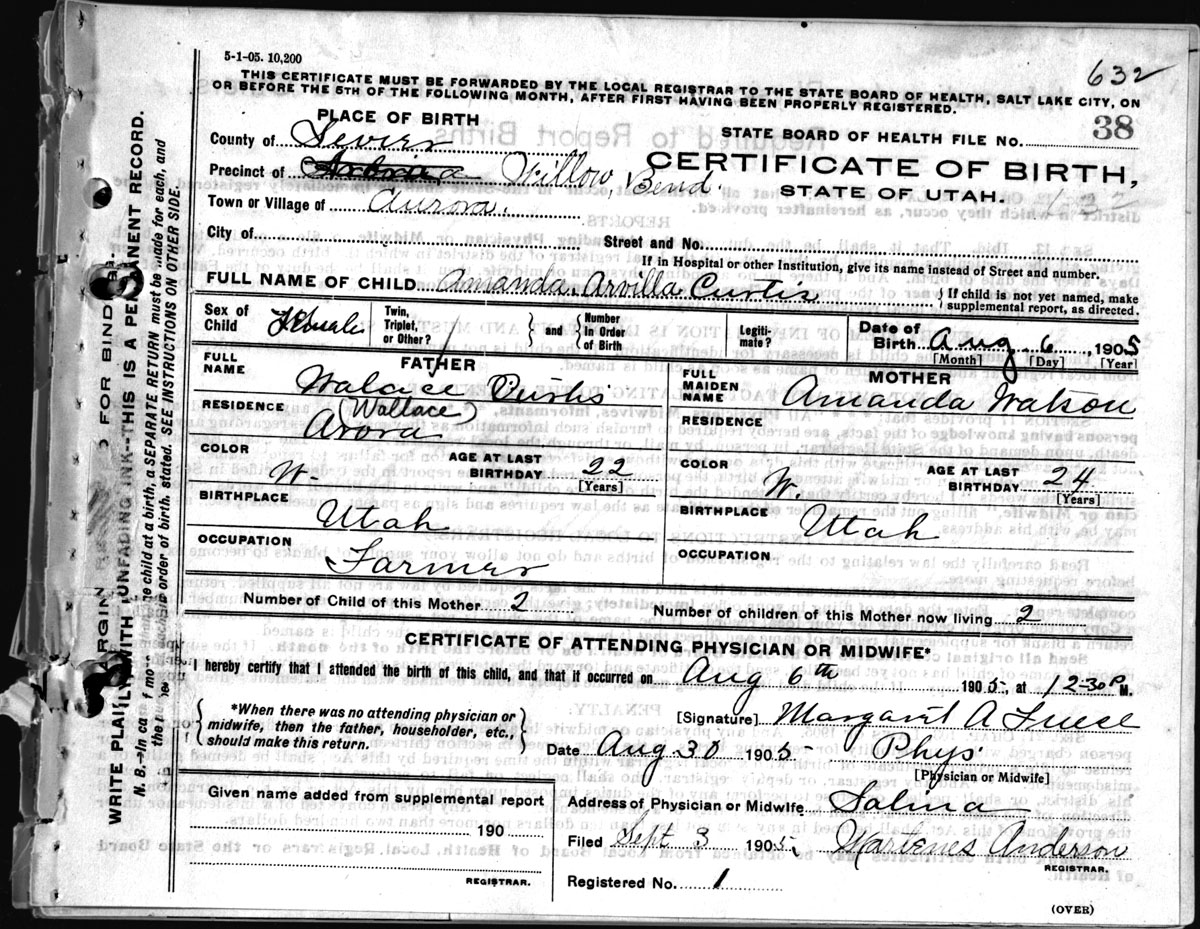 5-1-05. 10,200
632
THIS CERTIFICATE MUST BE FORWARDED BY THE LOCAL REGISTRAR TO THE STATE BOARD OF HEALTH, SALT LAKE CITY, ON
OR BEFORE THE 5TH OF THE FOLLOWING MONTH, AFTER FIRST HAVING BEEN PROPERLY REGISTERED.
PLACE OF BIRTH
STATE BOARD OF HEALTH FILE NO. 38
County of Sevier
CERTIFICATE OF BIRTH,
Precinct of Willow Bend
STATE OF UTAH.
Town or Village of Aurora.
City of
Street and No.
If in Hospital or other institution, give its name instead of Street and number.
FULL NAME OF CHILD Amanda Arvilla Curtis
If child is not yet named, make
supplemental report, as directed.
Sex of Child Female
Twin, Triplet, or Other?
and
Number in Order of Birth
Legiti- mate?
Date of Birth Aug 6, 1905
[Month] [Day] [Year]
FATHER
FULL NAME Walace Curtis
(Wallace)
RESIDENCE Arora
COLOR W.
AGE AT LAST BIRTHDAY 22
[Years]
BIRTHPLACE Utah
OCCUPATION Farmer
MOTHER
FULL MAIDEN NAME Amanda Watson
RESIDENCE
COLOR W.
AGE AT LAST BIRTHDAY 24
[Years]
BIRTHPLACE Utah
OCCUPATION
Number of Child of this Mother 2
Number of children of this Mother now living 2
CERTIFICATE OF ATTENDING PHYSICIAN OR MIDWIFE*
I hereby certify that I attended the birth of this child, and that it occurred on Aug 6th 1905, at 12-30 P M.
*When there was no attending physician or
midwife, then the father, householder, etc.,
should make this return.
[Signature] Margaret A
Date Aug 30 1905 Phys
[Physician or Midwife]
Given name added from supplemental report
190
REGISTRAR.
Address of Physician or Midwife Salina
Filed Sept 3 1905, Anderson
REGISTRAR.
Registered No. 1
(OVER)
MARGIN FOR BIND
WRITE PLAINLY WITH UNFADING INK--THIS IS A PERMANENT RECORD.
N. B.--In ca mor than one child at a birth, a SEPARATE RETURN must be made for each, and
order of birth, stated. SEE INSTRUCTIONS ON OTHER SIDE.